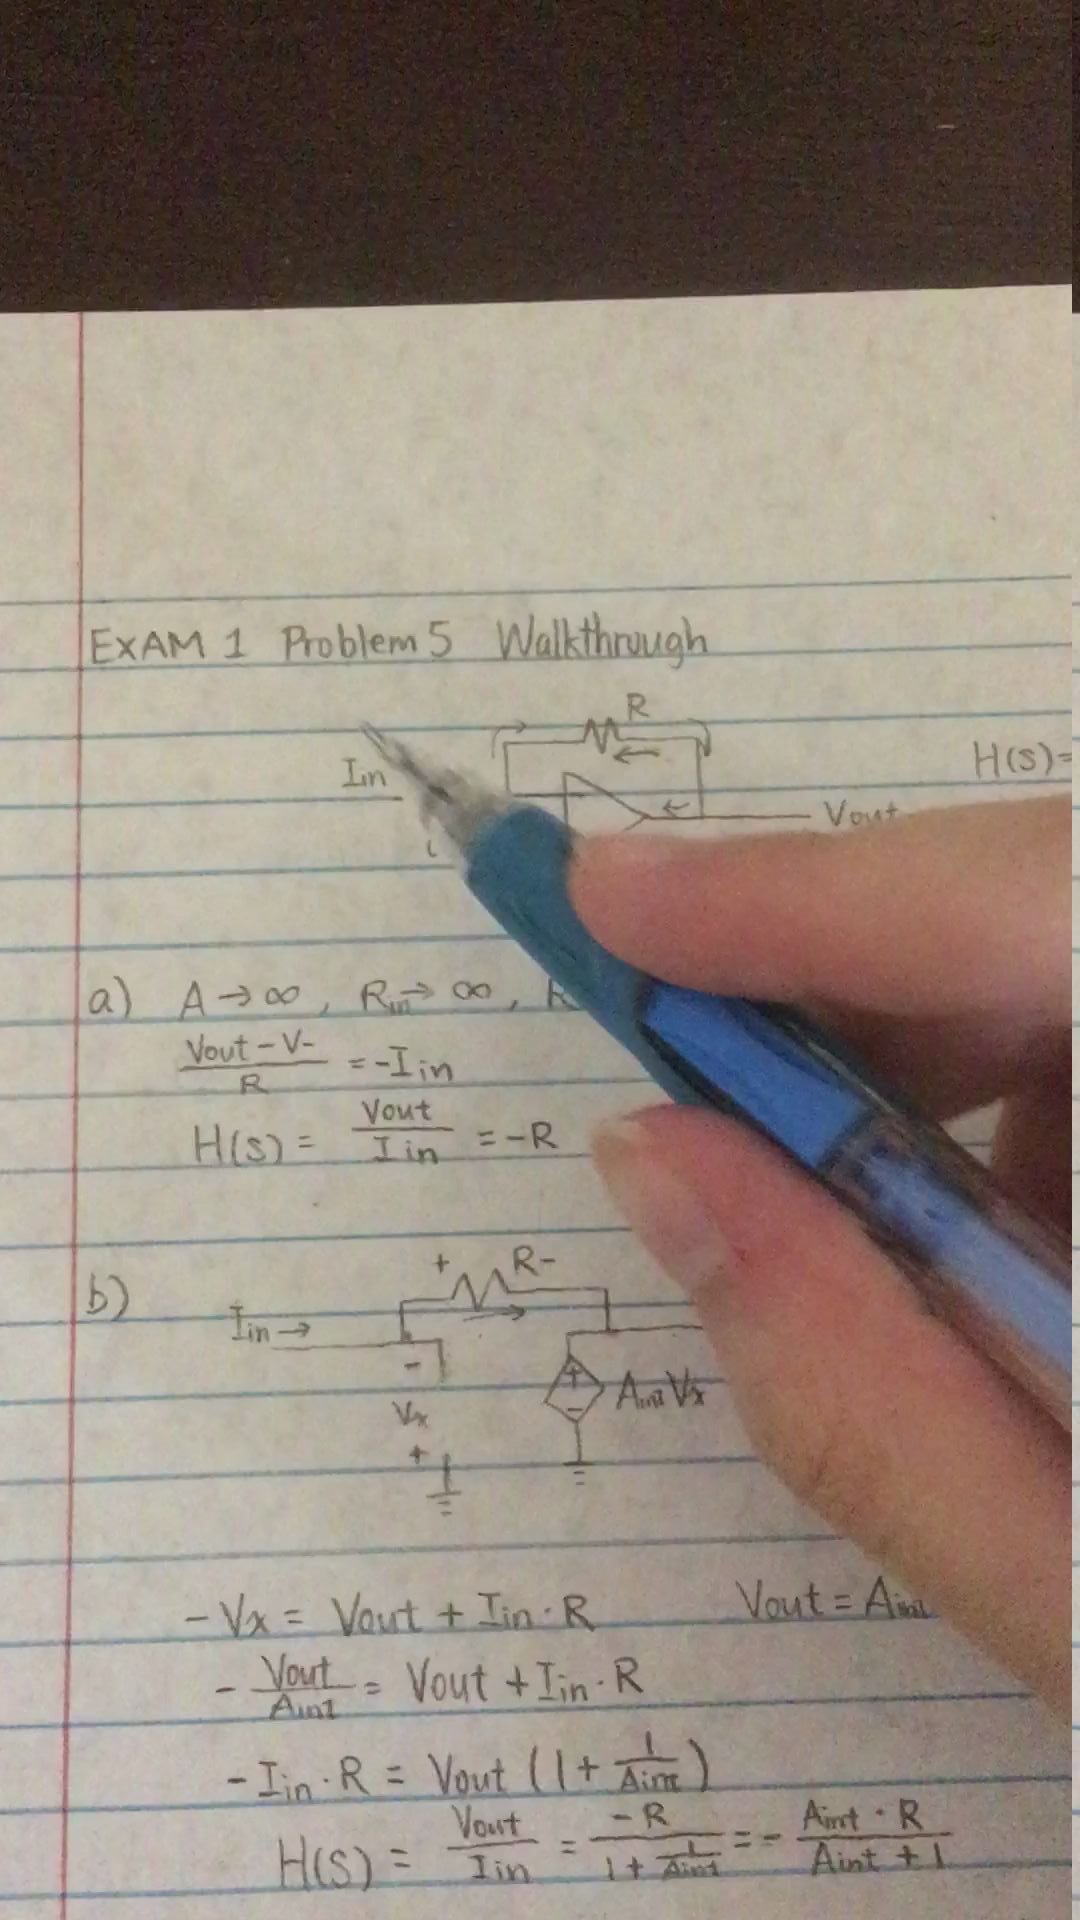 EXAM 1 Problem 5 Walkthrough
R
Iin
H(s)=
Vout
a) A → ∞ , Rin → ∞ ,
Vout - V-
R
= -Iin
H(s) = Vout / Iin = -R
b)
+ R -
Iin →
-
Vx
+
+
-
Aint Vx
-Vx = Vout + Iin · R
Vout = Aint
- Vout / Aint = Vout + Iin · R
-Iin · R = Vout (1 + 1 / Aint)
H(s) = Vout / Iin = -R / (1 + 1 / Aint) = - Aint · R / (Aint + 1)